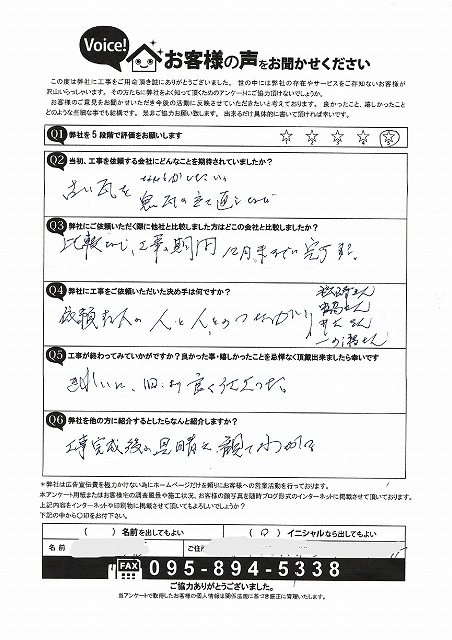 Voice!
お客様の声をお聞かせください
この度は弊社に工事をご用命頂き誠にありがとうございました。世の中には弊社の存在やサービスをご存知ないお客様が
沢山いらっしゃいます。その方たちに弊社をよく知って頂くためのアンケートにご協力頂けないでしょうか。
お客様のご意見をお聞かせいただき今後の活動に反映させていただきたいと考えております。良かったこと、嬉しかったこと
どのような些細な事でも結構です。是非ご協力お願い致します。出来るだけ具体的に書いて頂ければ幸いです。
Q1 弊社を5段階で評価をお願いします ☆ ☆ ☆ ☆ ☆
Q2 当初、工事を依頼する会社にどんなことを期待されていましたか?
古い瓦を
鬼瓦の立て直しなど
Q3 弊社にご依頼いただく際に他社と比較しました方はどこの会社と比較しましたか?
比較なし、工事の期間 12月末までに完了
Q4 弊社に工事をご依頼いただいた決め手は何ですか?
依頼する人の人と人とのつながり
Q5 工事が終わってみていかがですか?良かった事・嬉しかったことを忌憚なく頂戴出来ましたら幸いです
きれいに、旧より良く仕上った。
Q6 弊社を他の方に紹介するとしたらなんと紹介しますか?
工事完成後の
*弊社は広告宣伝費を極力かけない為にホームページだけを頼りにお客様への営業活動を行っております。
本アンケート用紙またはお客様宅の調査風景や施工状況、お客様の顔写真を随時ブログ形式のインターネットに掲載させて頂いております。
上記内容をインターネットや印刷物に掲載させて頂いてもよろしいでしょうか?
下記の中から〇印をお付下さい。
( ) 名前を出してもよい ( 〇 ) イニシャルなら出してもよい
名前 ご住
FAX 095-894-5338
ご協力ありがとうございました。
当アンケートで取得したお客様の個人情報は関係法規に基づき厳正に管理いたします。